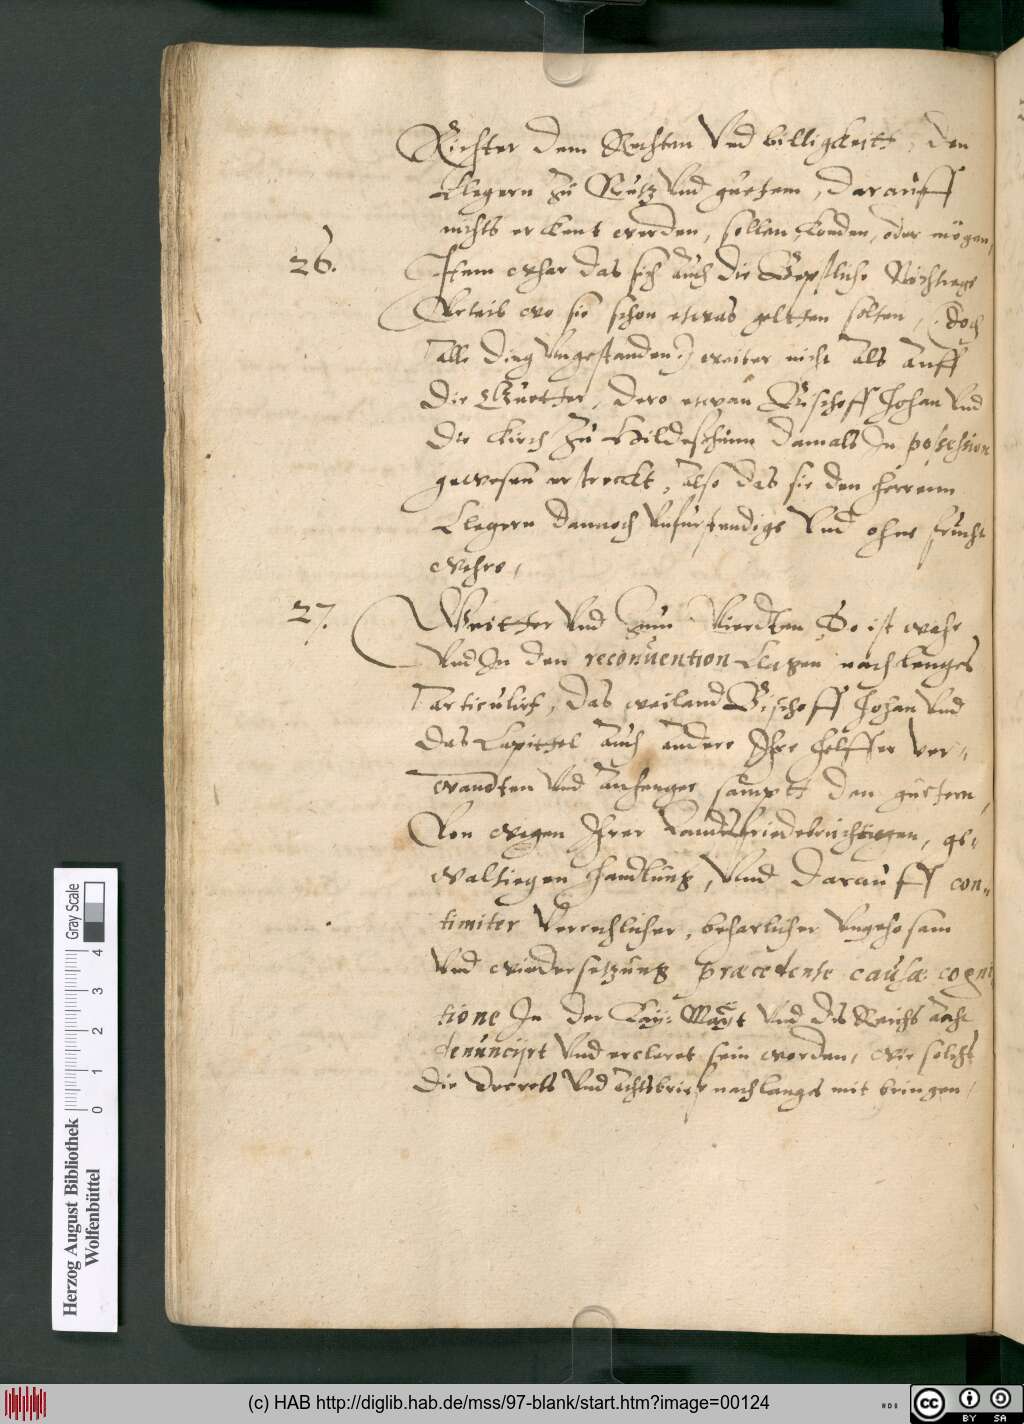 Richter dem Rechten Vnd billigkeitt, den
Clegern zu Nutz Vnd guetem, darauff
nichts erkent werden, sollen, konden, oder mögen,
26.
Item whar das sich auch die Bepstliche Rechtlege
Vrteil wo sie schon etwas geltten solten, (doch
alle ding Vngestanden:) weiter nicht als auff
die Guetter, dero etwan Bischoff Johan Vnd
die Kirch zu Hildeßheim damals In possession
gewesen erstreckt, also das sie den herrenn
Clegern dannoch Vnfurstendige Vnd ohne frucht
where,
27.
Weitter Vnd zum Vierdten, So ist wahr
Vnd In den reconuention Clagen nach lenges
articulirt, das weiland Bischoff Johan Vnd
das Capittel auch andere Ihre helffer ver-
wandten Vnd anhenger sampt den guetern,
Von wegen Ihrer Landtfriedbruchtigen, ge-
waltiegen handlung, Vnd darauff con-
timiter Veruchlicher, beharlicher Vngehosam
Vnd wiedersetzung præcedente causæ cogni
tione In der Kay: Mayt Vnd des Reichs Acht
denuncijrt Vnd ercleret sein worden, wie solchs
die decrets Vnd Achtsbrief nach langes mit bringen,
Herzog August Bibliothek
Wolfenbüttel
Gray Scale
0 1 2 3 4
(c) HAB http://diglib.hab.de/mss/97-blank/start.htm?image=00124
HAB
cc BY SA